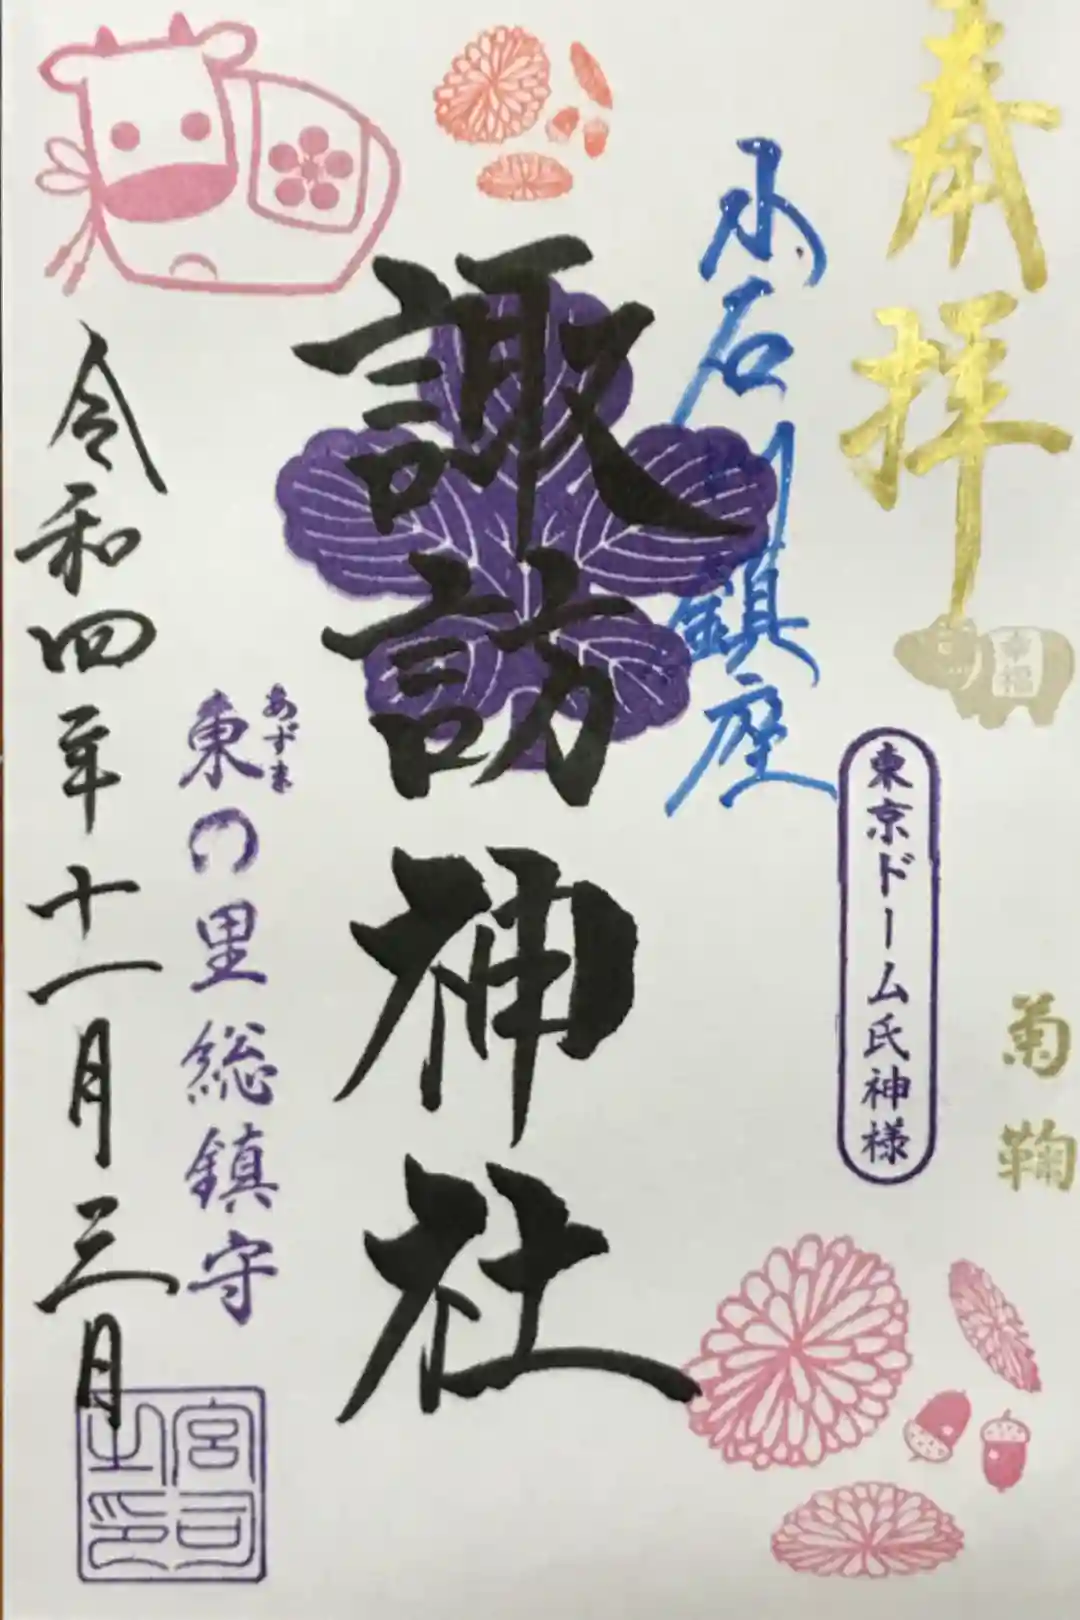 奉拝
幸福
菊鞠
東京ドーム氏神様
小石川鎮座
諏訪神社
あずま
東の里総鎮守
令和四年十一月三日
宮司之印